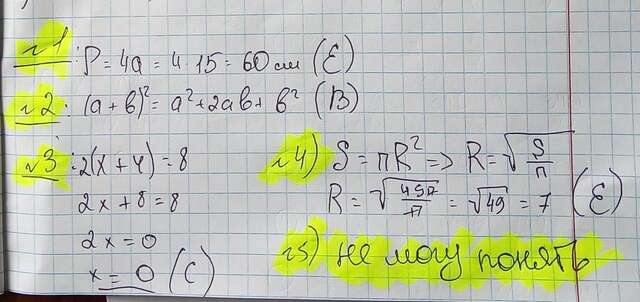 №1: P = 4a = 4 · 15 = 60 см (E)
№2: (a + b)² = a² + 2ab + b² (B)
№3: 2(x + 4) = 8
2x + 8 = 8
2x = 0
x = 0 (C)
№4) S = πR² => R = √(S/π)
R = √(49π/π) = √49 = 7 (E)
№5) не могу понять